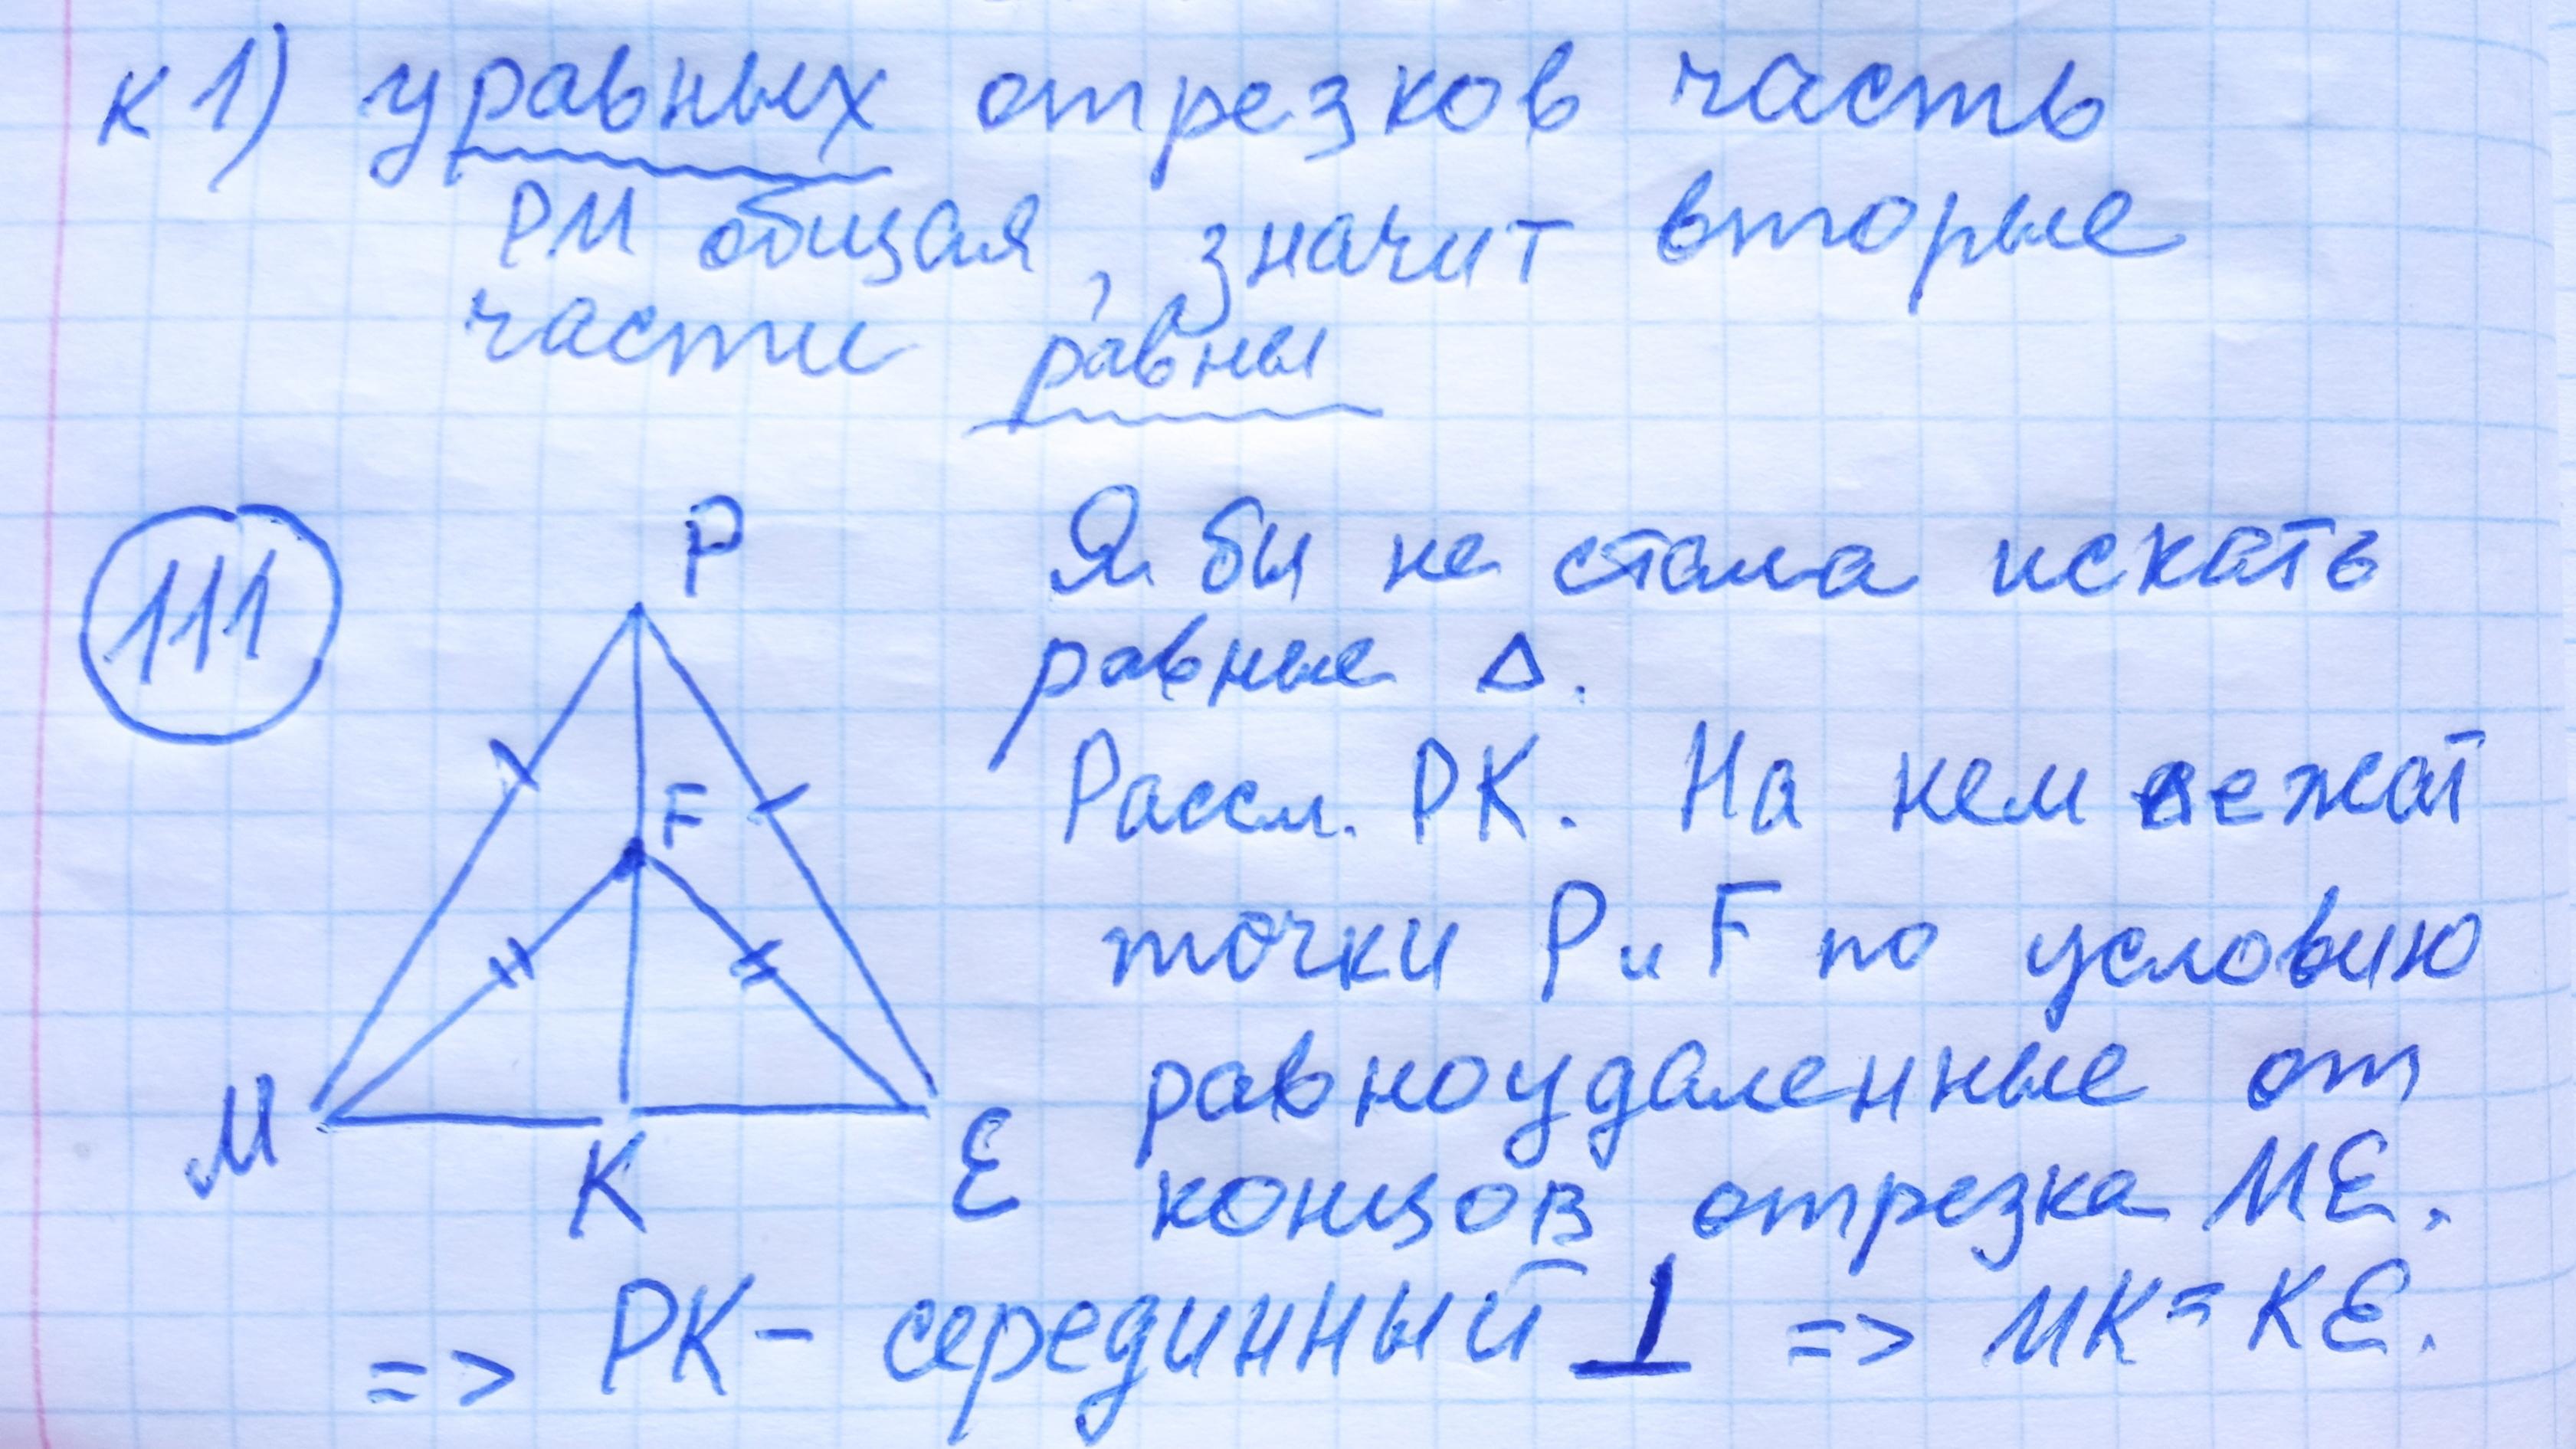 к 1) у равных отрезков часть
РМ общая, значит вторые
части равны
111
P
Я бы не стала искать
равные Δ.
F
Рассм. РК. На нем лежат
точки Р и F по условию
равноудаленные от
M
K
E
концов отрезка МЕ.
=> РК - серединный ⊥ => МК = КЕ.